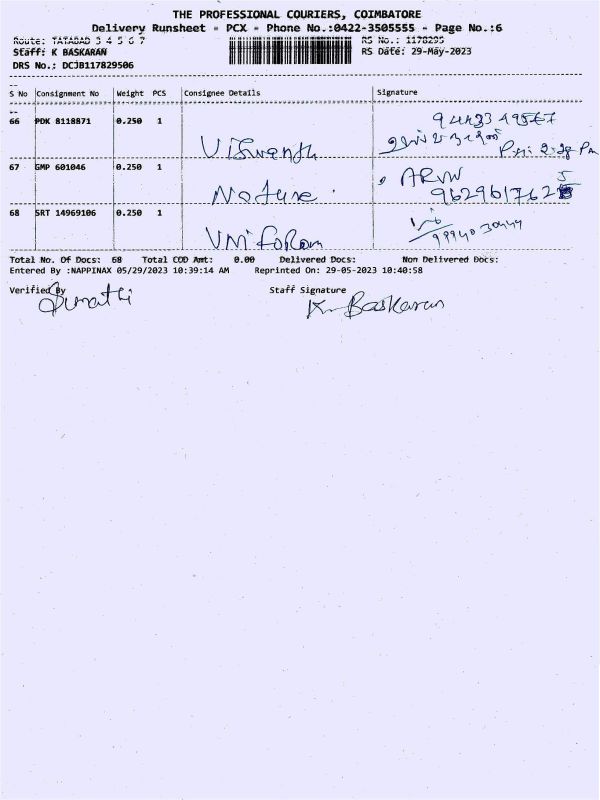 THE PROFESSIONAL COURIERS, COIMBATORE
Delivery Runsheet - PCX - Phone No.:0422-3505555 - Page No.:6
Route: TATABAD 3 4 5 6 7 RS No.: 1178295
Staff: K BASKARAN RS Date: 29-May-2023
DRS No.: DCJB117829506
S No Consignment No Weight PCS Consignee Details Signature
66 PDK 8118871 0.250 1
Viswanth
67 GMP 601046 0.250 1 ARVN
Nature
68 SRT 14969106 0.250 1
UNiFORam
Total No. Of Docs: 68 Total COD Amt: 0.00 Delivered Docs: Non Delivered Docs:
Entered By :NAPPINAX 05/29/2023 10:39:14 AM Reprinted On: 29-05-2023 10:40:58
Verified By Staff Signature
Sumathi K Baskaran